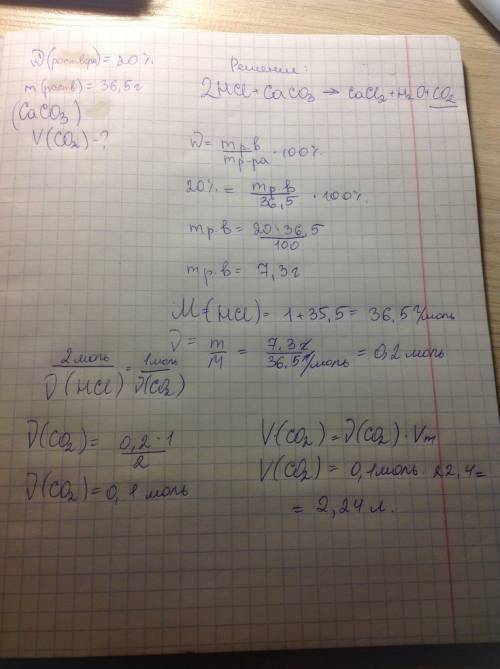 W(раствора) = 20%
m(раств) = 36,5г
(CaCO3)
V(CO2) - ?
Решение:
2HCl + CaCO3 → CaCl2 + H2O + CO2
W = mр.в / mр-ра · 100%
20% = mр.в / 36,5 · 100%
mр.в = 20·36,5 / 100
mр.в = 7,3г
M(HCl) = 1 + 35,5 = 36,5 г/моль
ν = m / M = 7,3г / 36,5г/моль = 0,2 моль
2 моль / ν(HCl) = 1 моль / ν(CO2)
ν(CO2) = 0,2 · 1 / 2
ν(CO2) = 0,1 моль
V(CO2) = ν(CO2) · Vm
V(CO2) = 0,1моль · 22,4 =
= 2,24 л.